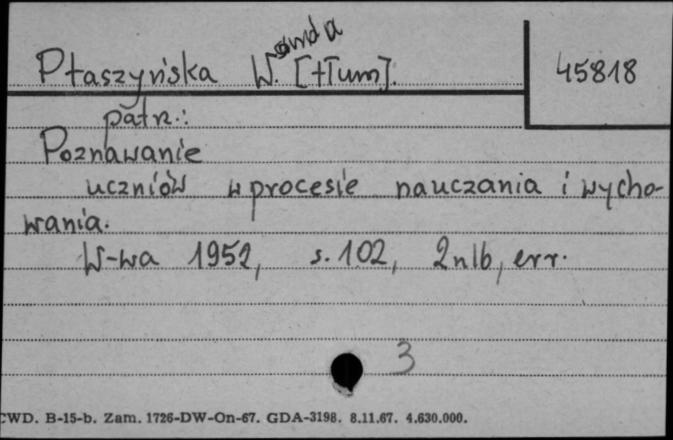 Ptaszyńska W.anda [tłum].
45818
patrz:
Poznawanie
uczniów w procesie nauczania i wycho-
wania.
W-wa 1952, s. 102, 2nlb, err.
3
CWD. B-15-b. Zam. 1726-DW-On-67. GDA-3198. 8.11.67. 4.630.000.